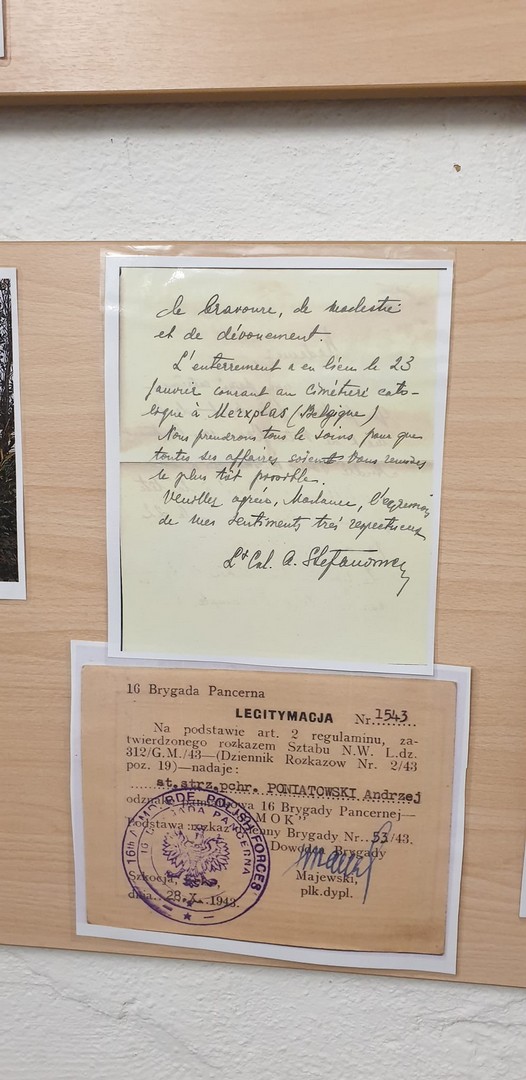 de bravoure, de modestie
et de dévouement.
L'enterrement a eu lieu le 23
janvier courant au cimétière cato-
logque à Merxplas (Belgique)
Nous prendrons tous le soins pour que
toutes ses affaires soient Vous remises
le plus tôt possible.
Veuillez agréer, Madame, l'expression
de mes sentiments très respectueux
Lt Col. A. Stefanowicz
16 Brygada Pancerna
LEGITYMACJA Nr. 1543
Na podstawie art. 2 regulaminu, za-
twierdzonego rozkazem Sztabu N.W. L.dz.
312/G.M./43—(Dziennik Rozkazow Nr. 2/43
poz. 19)—nadaje:
st.strz.pchr. PONIATOWSKI Andrzej
odznakę 16 Brygady Pancernej—
MOK"
Podstawa: rozkaz Brygady Nr. 53/43.
Dowódca Brygady
Majewski,
Szkocja,
plk.dypl.
dnia 28.X. 1943.
16th POLISH FORCES
16 BRYGADA PANCERNA